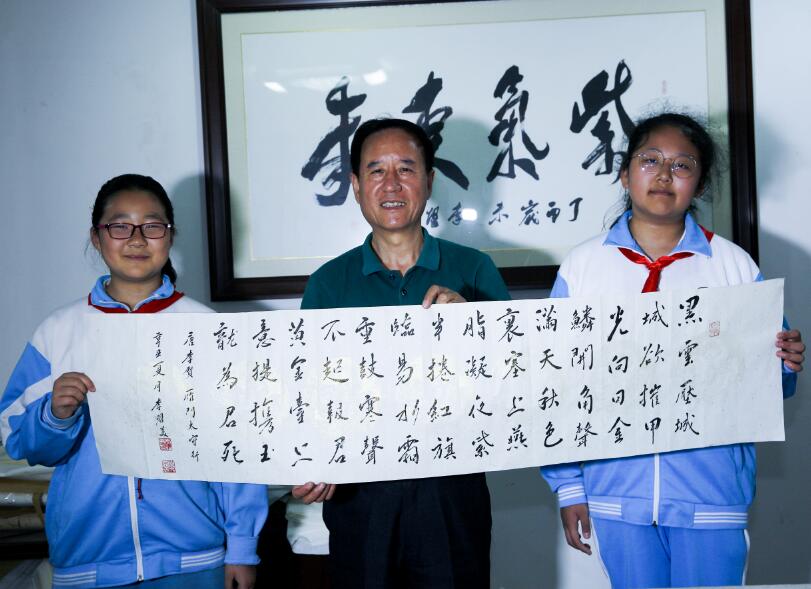 紫氣東來
丁酉歲末 李
黑雲壓城
城欲摧甲
光向日金
鱗開角聲
滿天秋色
裏塞上燕
脂凝夜紫
半捲紅旗
臨易水霜
重鼓寒聲
不起報君
黃金臺上
意提攜玉
龍為君死
唐李賀 雁門太守行
辛丑夏月 李